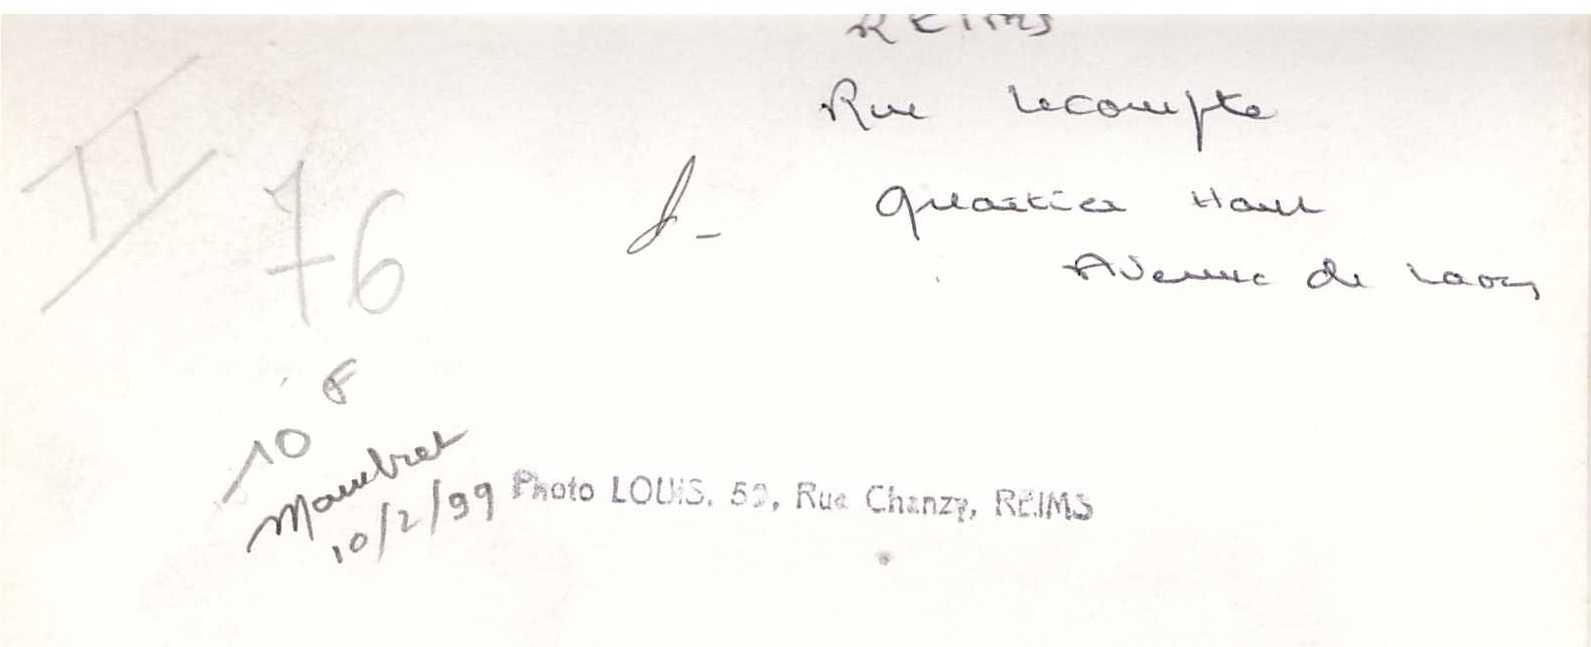 REIMS
Rue Lecompte
Quartier Haut
Avenue de Laon
II
76
8
10
10/2/99
Photo LOUIS. 59, Rue Chanzy, REIMS